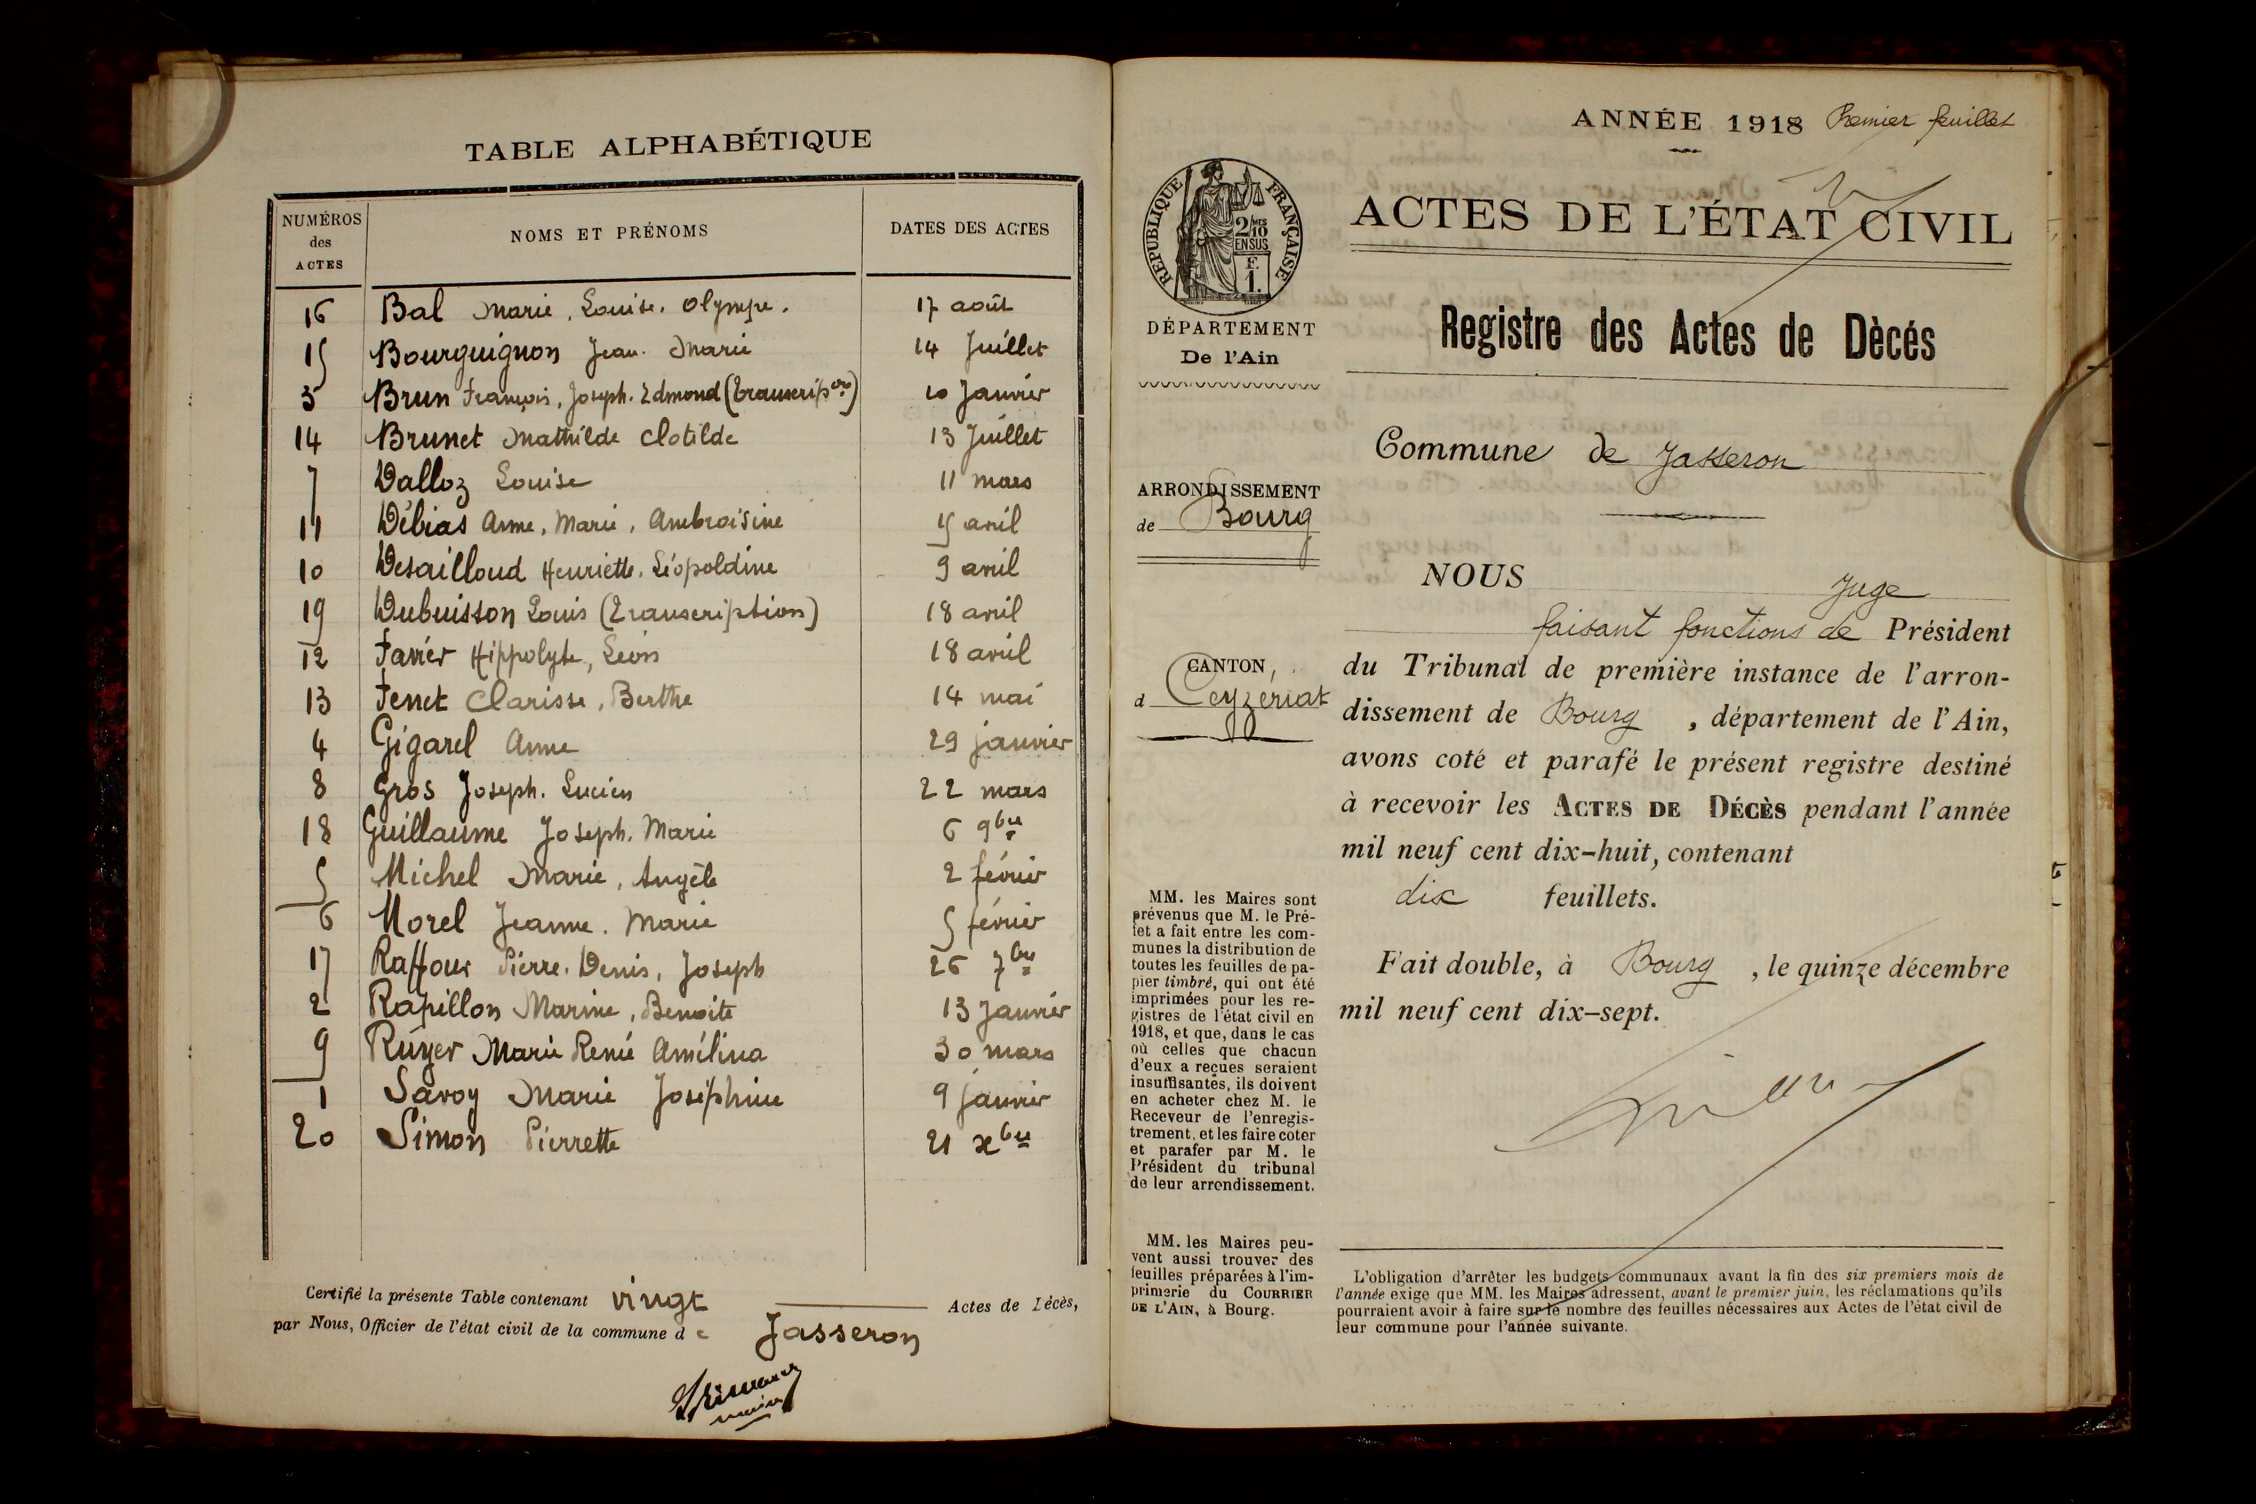 TABLE ALPHABÉTIQUE
NUMÉROS des ACTES NOMS ET PRÉNOMS DATES DES ACTES
16 Bal Marie, Louise, Olympe. 17 août
15 Bourguignon Jean. Marie 14 Juillet
3 Brun François, Joseph. Edmond (transcripon) 10 Janvier
14 Brunet Mathilde Clotilde 13 Juillet
7 Dalloz Louise 11 mars
11 Débias Anne, Marie, Ambroisine 15 avril
10 Desailloud Henriette, Léopoldine 9 avril
19 Dubuisson Louis (Transcription) 18 avril
12 Favier Hippolyte, Léon 18 avril
13 Ferret Clarisse, Berthe 14 mai
4 Gigarel Anne 29 janvier
8 Gros Joseph. Lucien 22 mars
18 Guillaume Joseph. Marie 6 9bre
5 Michel Marie, Angèle 2 février
6 Morel Jeanne. Marie 5 février
17 Raffour Pierre. Denis, Joseph 26 7bre
2 Rapillon Marine, Benoite 13 Janvier
9 Ruyer Marie René Amélina 30 mars
1 Savoy Marie Joséphine 9 janvier
20 Simon Pierrette 21 xbre
Certifié la présente Table contenant vingt Actes de Décès,
par Nous, Officier de l'état civil de la commune de Jasseron
maire
ANNÉE 1918 Premier feuillet
RÉPUBLIQUE FRANÇAISE
2/10 MES
EN SUS
F.
1.
DÉPARTEMENT
De l'Ain
ARRONDISSEMENT
de Bourg
CANTON
d Ceyzeriat
MM. les Maires sont
prévenus que M. le Pré-
fet a fait entre les com-
munes la distribution de
toutes les feuilles de pa-
pier timbré, qui ont été
imprimées pour les re-
gistres de l'état civil en
1918, et que, dans le cas
où celles que chacun
d'eux a reçues seraient
insuffisantes, ils doivent
en acheter chez M. le
Receveur de l'enregis-
trement, et les faire coter
et parafer par M. le
Président du tribunal
de leur arrondissement.
MM. les Maires peu-
vent aussi trouver des
feuilles préparées à l'im-
primerie du COURRIER
DE L'AIN, à Bourg.
ACTES DE L'ÉTAT CIVIL
Registre des Actes de Dècés
Commune de Jasseron
NOUS Juge
faisant fonctions de Président
du Tribunal de première instance de l'arron-
dissement de Bourg, département de l'Ain,
avons coté et parafé le présent registre destiné
à recevoir les ACTES DE DÉCÈS pendant l'année
mil neuf cent dix-huit, contenant
dix feuillets.
Fait double, à Bourg, le quinze décembre
mil neuf cent dix-sept.
L'obligation d'arrêter les budgets communaux avant la fin des six premiers mois de
l'année exige que MM. les Maires adressent, avant le premier juin, les réclamations qu'ils
pourraient avoir à faire sur le nombre des feuilles nécessaires aux Actes de l'état civil de
leur commune pour l'année suivante.